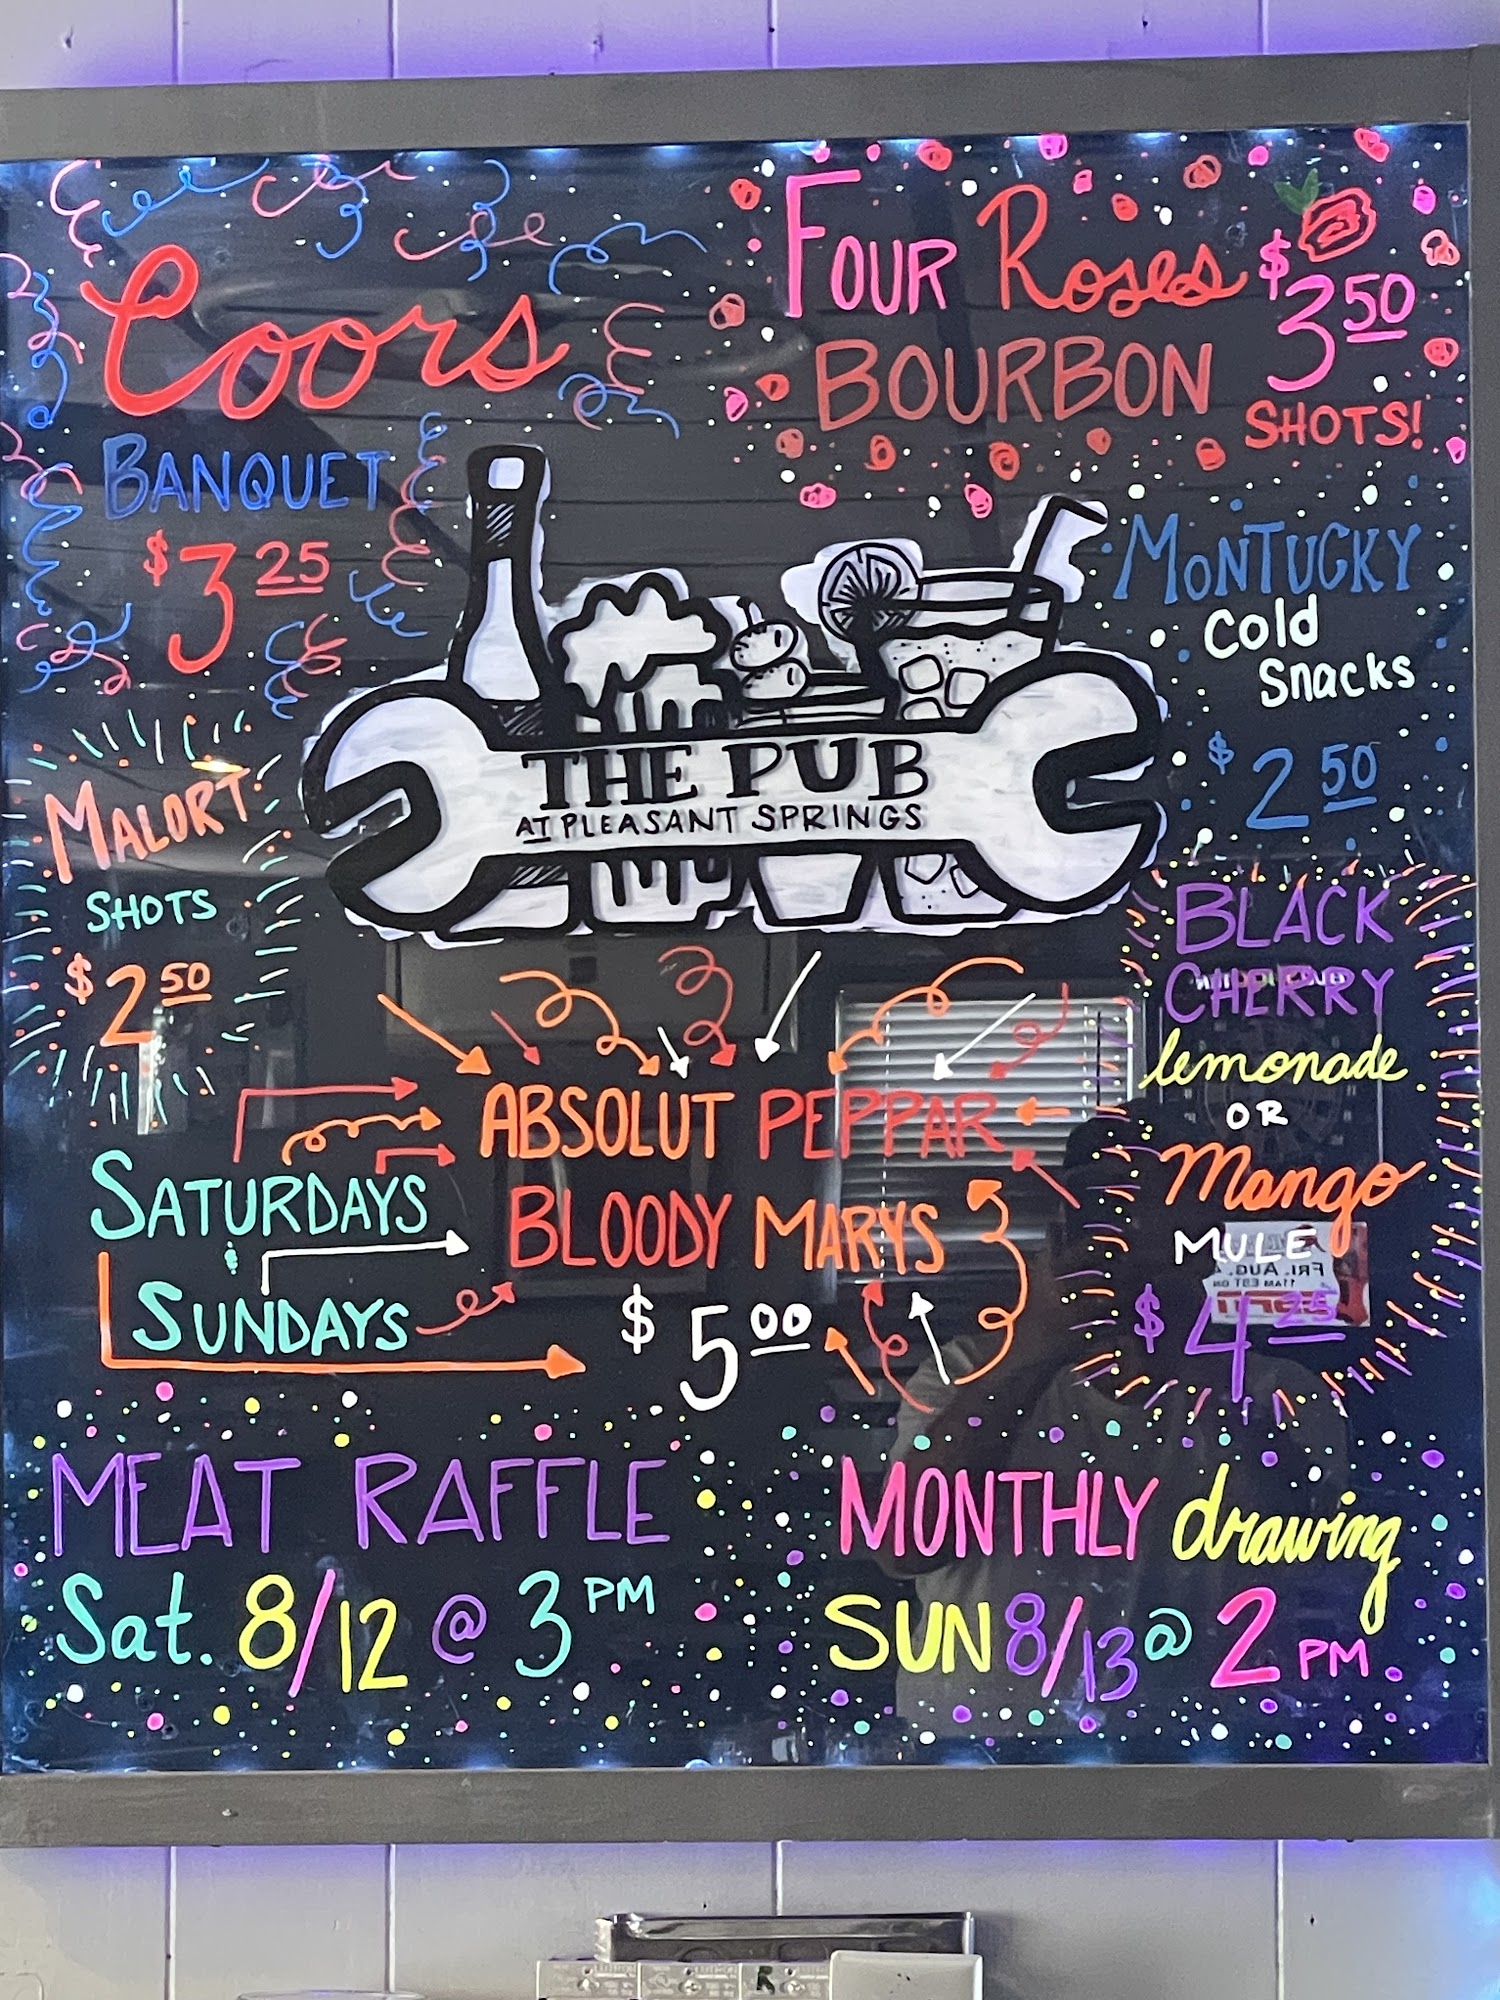 Coors
BANQUET
$3 25
FOUR Roses
BOURBON
$3 50
SHOTS!
MONTUCKY
Cold
Snacks
$2 50
THE PUB
AT PLEASANT SPRINGS
MALORT
SHOTS
$2 50
BLACK
CHERRY
lemonade
OR
Mango
MULE
$4 25
ABSOLUT PEPPAR
BLOODY MARYS
$5 00
SATURDAYS
&
SUNDAYS
MEAT RAFFLE
Sat. 8/12 @ 3 PM
MONTHLY drawing
SUN 8/13 @ 2 PM
FRI. AUG. 4
11AM EST ON